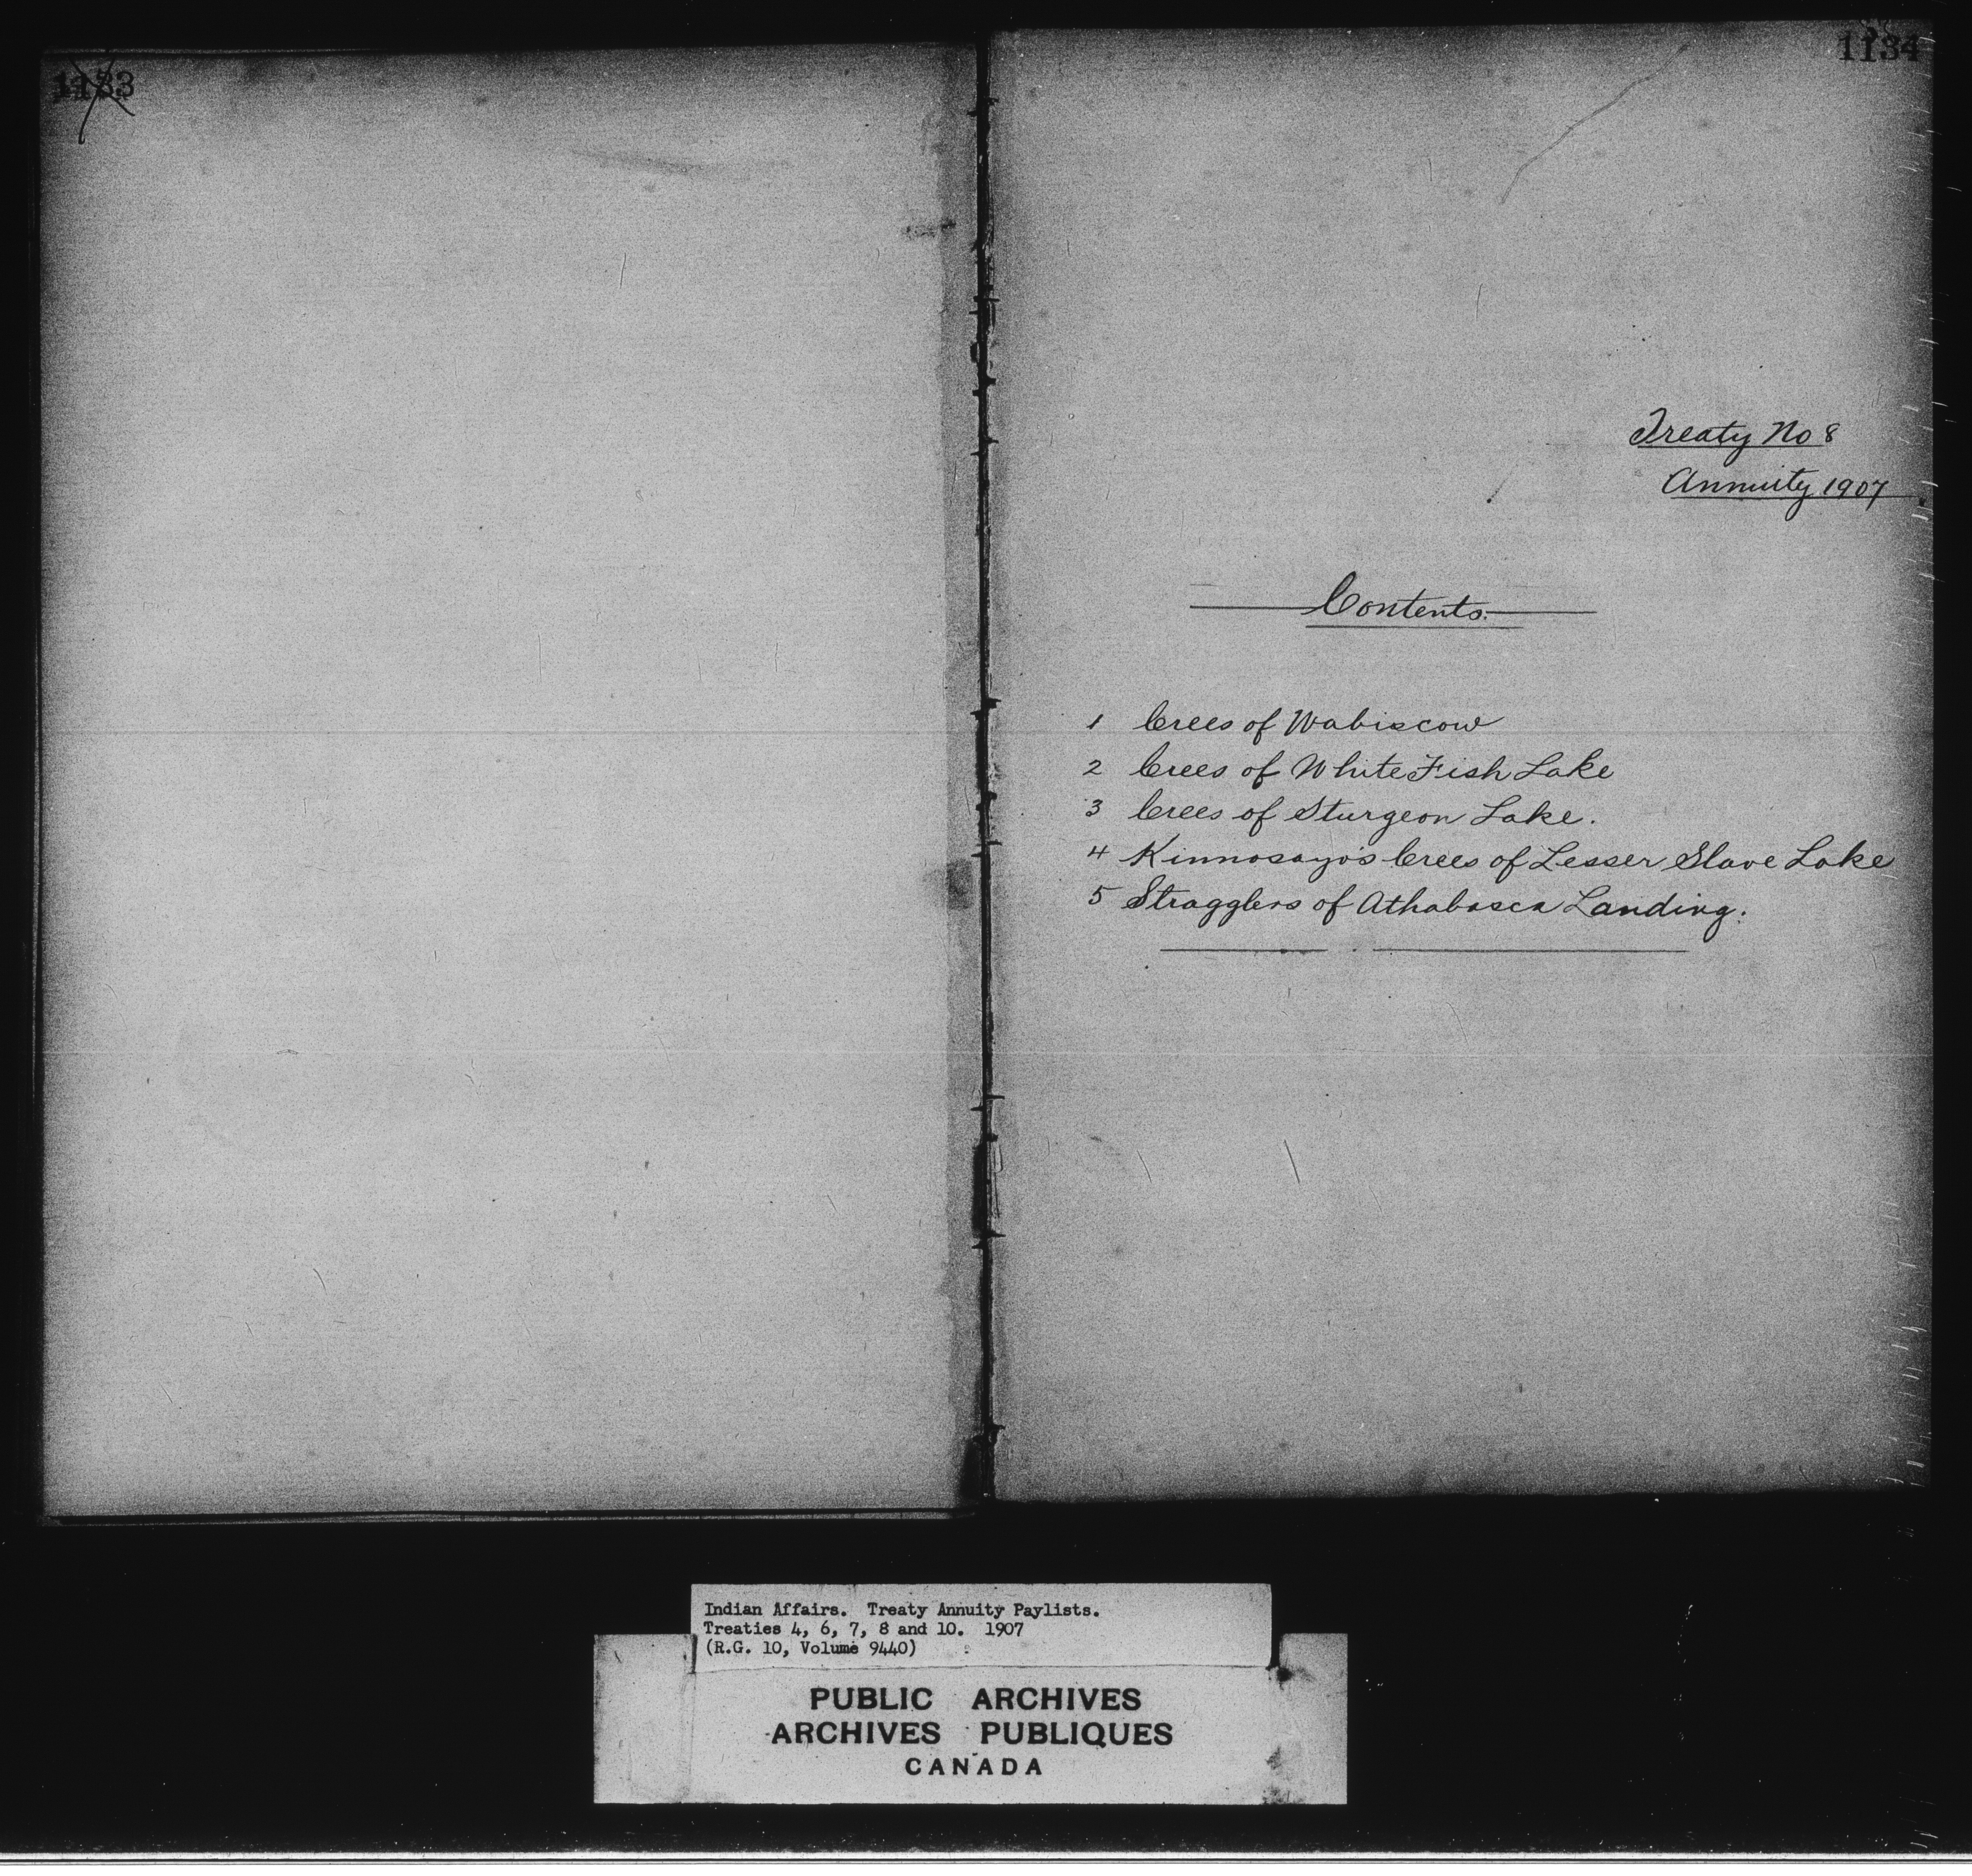 1133
1134
Treaty No 8
Annuity 1907
Contents.
1 Crees of Wabiscow
2 Crees of White Fish Lake
3 Crees of Sturgeon Lake.
4 Kinnosayo's Crees of Lesser Slave Lake
5 Stragglers of Athabasca Landing.
Indian Affairs. Treaty Annuity Paylists.
Treaties 4, 6, 7, 8 and 10. 1907
(R.G. 10, Volume 9440)
PUBLIC ARCHIVES
ARCHIVES PUBLIQUES
CANADA